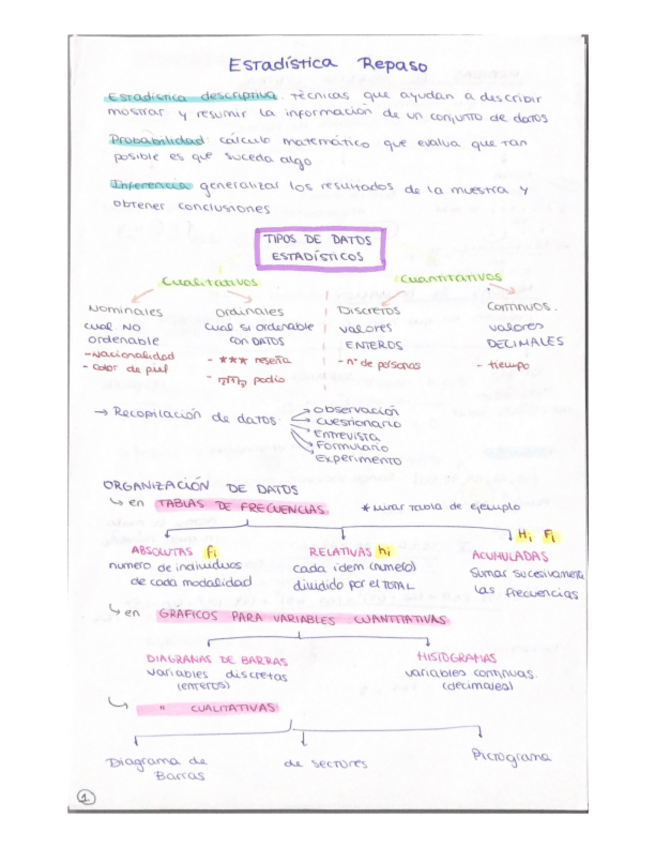 Estadística Repaso
Estadística descriptiva. Técnicas que ayudan a describir
mostrar y resumir la información de un conjunto de datos
Probabilidad: cálculo matemático que evalua que tan
posible es que suceda algo
Inferencia generalizar los resultados de la muestra y
obtener conclusiones
TIPOS DE DATOS
ESTADÍSTICOS
Cualitativos Cuantitativos
Nominales Ordinales Discretos Continuos.
cual NO cual si ordenable valores valores
ordenable con DATOS ENTEROS DECIMALES
- Nacionalidad - *** reseña - nº de personas - tiempo
- color de piel - podio
→ Recopilación de datos
observación
cuestionario
Entrevista
Formulario
Experimento
ORGANIZACIÓN DE DATOS
↳ en TABLAS DE FRECUENCIAS * Mirar tabla de ejemplo
Hi Fi
ABSOLUTAS fi RELATIVAS hi ACUMULADAS
numero de individuos cada idem (numero) Sumar sucesivamente
de cada modalidad dividido por el TOTAL las frecuencias
↳ en GRÁFICOS PARA VARIABLES CUANTITATIVAS
DIAGRAMAS DE BARRAS HISTOGRAMAS
variables discretas variables continuas.
(enteros) (decimales)
↳ " CUALITATIVAS
Diagrama de Barras de sectores Pictograma
1